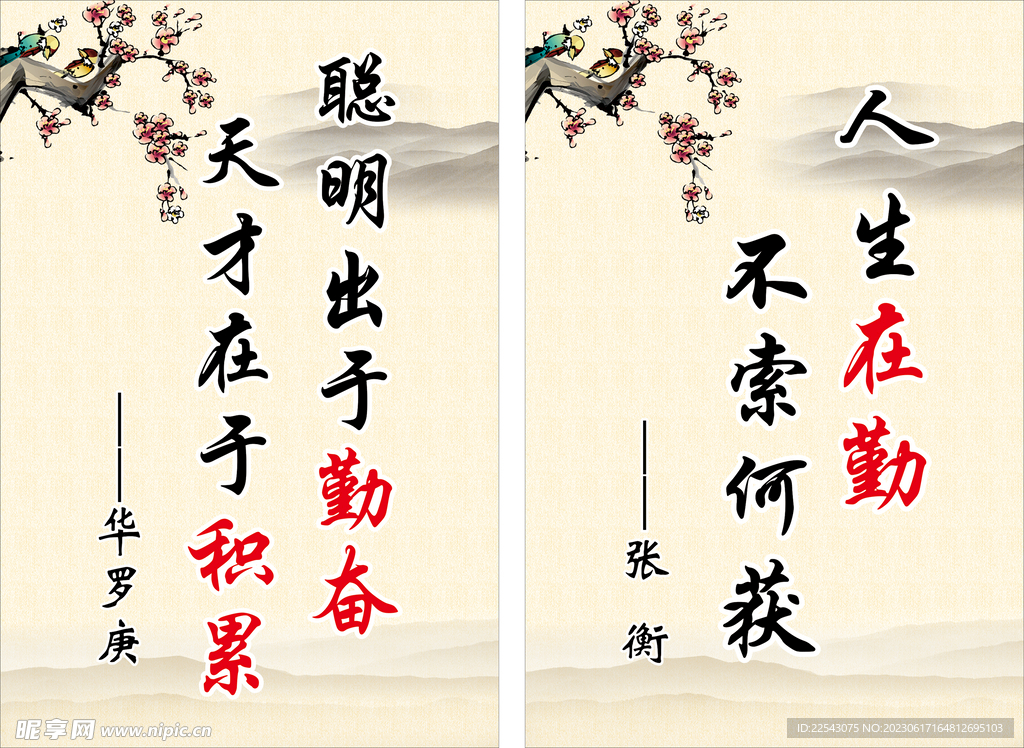 聪明出于勤奋
天才在于积累
——华罗庚
人生在勤
不索何获
——张衡
昵享网 www.nipic.cn
ID:22543075 NO:20230617164812695103